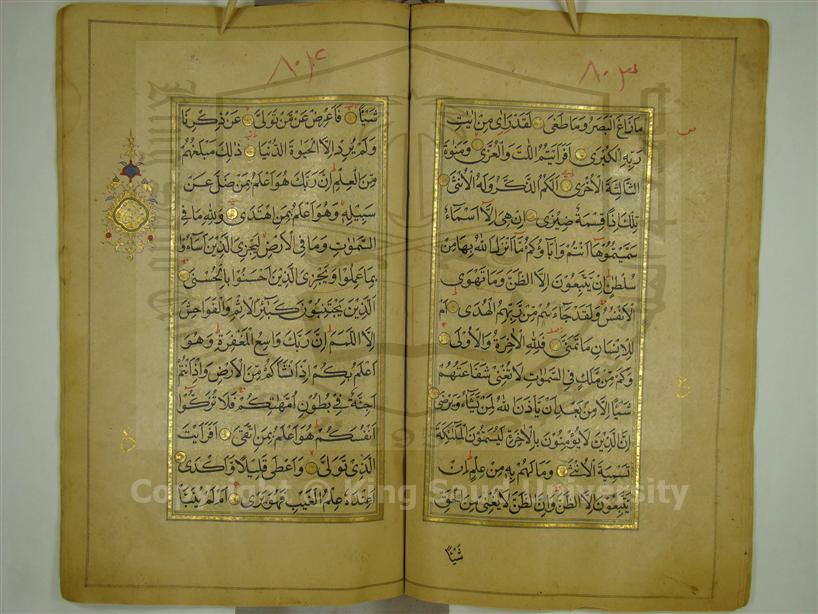 ٨٠٣
مَا زَاغَ الْبَصَرُ وَمَا طَغٰى لَقَدْ رَاٰى مِنْ اٰيٰتِ
رَبِّهِ الْكُبْرٰى اَفَرَاَيْتُمُ اللّٰتَ وَالْعُزّٰى وَمَنٰوةَ
الثَّالِثَةَ الْاُخْرٰى اَلَكُمُ الذَّكَرُ وَلَهُ الْاُنْثٰى
تِلْكَ اِذًا قِسْمَةٌ ضِيْزٰى اِنْ هِيَ اِلَّا اَسْمَاءٌ
سَمَّيْتُمُوْهَا اَنْتُمْ وَاٰبَاؤُكُمْ مَا اَنْزَلَ اللّٰهُ بِهَا مِنْ
سُلْطٰنٍ اِنْ يَتَّبِعُوْنَ اِلَّا الظَّنَّ وَمَا تَهْوَى
الْاَنْفُسُ وَلَقَدْ جَاءَهُمْ مِنْ رَبِّهِمُ الْهُدٰى اَمْ
لِلْاِنْسَانِ مَا تَمَنّٰى فَلِلّٰهِ الْاٰخِرَةُ وَالْاُوْلٰى
وَكَمْ مِنْ مَلَكٍ فِي السَّمٰوٰتِ لَا تُغْنِيْ شَفَاعَتُهُمْ
شَيْئًا اِلَّا مِنْ بَعْدِ اَنْ يَاْذَنَ اللّٰهُ لِمَنْ يَشَاءُ وَيَرْضٰى
اِنَّ الَّذِيْنَ لَا يُؤْمِنُوْنَ بِالْاٰخِرَةِ لَيُسَمُّوْنَ الْمَلٰئِكَةَ
تَسْمِيَةَ الْاُنْثٰى وَمَا لَهُمْ بِهِ مِنْ عِلْمٍ اِنْ
يَتَّبِعُوْنَ اِلَّا الظَّنَّ وَاِنَّ الظَّنَّ لَا يُغْنِيْ مِنَ الْحَقِّ
شَيْئًا
٨٠٤
شَيْئًا فَاَعْرِضْ عَنْ مَنْ تَوَلّٰى عَنْ ذِكْرِنَا
وَلَمْ يُرِدْ اِلَّا الْحَيٰوةَ الدُّنْيَا ذٰلِكَ مَبْلَغُهُمْ
مِنَ الْعِلْمِ اِنَّ رَبَّكَ هُوَ اَعْلَمُ بِمَنْ ضَلَّ عَنْ
سَبِيْلِهِ وَهُوَ اَعْلَمُ بِمَنِ اهْتَدٰى وَلِلّٰهِ مَا فِي
السَّمٰوٰتِ وَمَا فِي الْاَرْضِ لِيَجْزِيَ الَّذِيْنَ اَسَاءُوْا
بِمَا عَمِلُوْا وَيَجْزِيَ الَّذِيْنَ اَحْسَنُوْا بِالْحُسْنٰى
اَلَّذِيْنَ يَجْتَنِبُوْنَ كَبَائِرَ الْاِثْمِ وَالْفَوَاحِشَ
اِلَّا اللَّمَمَ اِنَّ رَبَّكَ وَاسِعُ الْمَغْفِرَةِ وَهُوَ
اَعْلَمُ بِكُمْ اِذْ اَنْشَاَكُمْ مِنَ الْاَرْضِ وَاِذْ اَنْتُمْ
اَجِنَّةٌ فِيْ بُطُوْنِ اُمَّهٰتِكُمْ فَلَا تُزَكُّوْا
اَنْفُسَكُمْ هُوَ اَعْلَمُ بِمَنِ اتَّقٰى اَفَرَاَيْتَ
الَّذِيْ تَوَلّٰى وَاَعْطٰى قَلِيْلًا وَاَكْدٰى
اَعِنْدَهُ عِلْمُ الْغَيْبِ فَهُوَ يَرٰى اَمْ لَمْ يُنَبَّاْ
Copyright © King Saud University